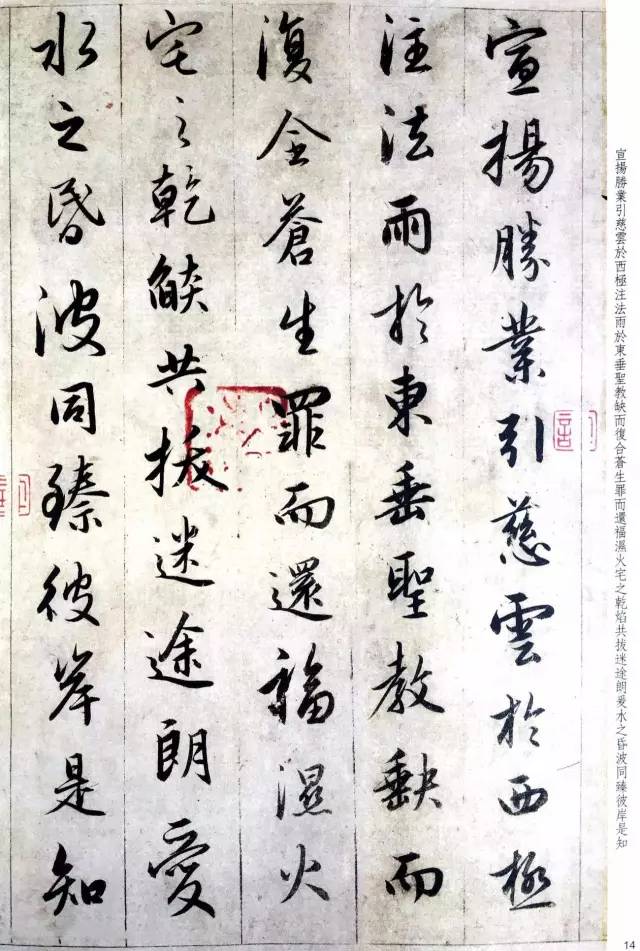 宣揚勝業引慈雲於西極注法雨於東垂聖教缺而復合蒼生罪而還福濕火宅之乾焰共拔迷途朗爱水之昏波同臻彼岸是知
宣揚勝業引慈雲於西極
注法雨於東垂聖教缺而
復全蒼生罪而還福濕火
宅之乾燄共拔迷途朗愛
水之昏波同臻彼岸是知
14